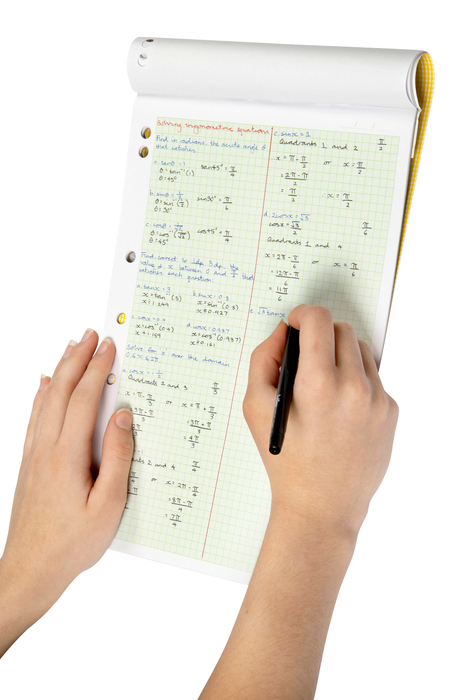 Solving trigonometric equations
Find in radians, the acute angle θ
that satisfies
a. tanθ = 1
θ = tan⁻¹(1)
θ = 45°
tan45° = π/4
b.
θ = 30°
sin30° = π/6
c.
θ = 45°
cos45° = π/4
Find, correct to 3dp, the
value of x between 0 and π/2 that
satisfies each equation
a. tanx = 3
x = tan⁻¹(3)
x = 1.249
b. sinx = 0.8
x = sin⁻¹(0.8)
x = 0.927
c. cosx = 0.4
x = cos⁻¹(0.4)
x = 1.159
d. cosx = 0.987
x = cos⁻¹(0.987)
x = 0.161
Solve for x over the domain
0 ≤ x ≤ 2π
cosx = -1/2
Quadrants 2 and 3 π/3
x = π - π/3 or x = π + π/3
= 3π + π/3
= 4π/3
2 and 4 π/4
or x = 2π - π/4
= 8π - π/4
= 7π/4
c. sinx =
Quadrants 1 and 2 π/2
or x = π/2
= 2π - π/2
= π/2 ∴ x = π/2
d. 2cosx = √3
cosx = √3/2 π/6
Quadrants 1 and 4
x = 2π - π/6 or x = π/6
= 12π - π/6
= 11π/6
e. √3 tanx